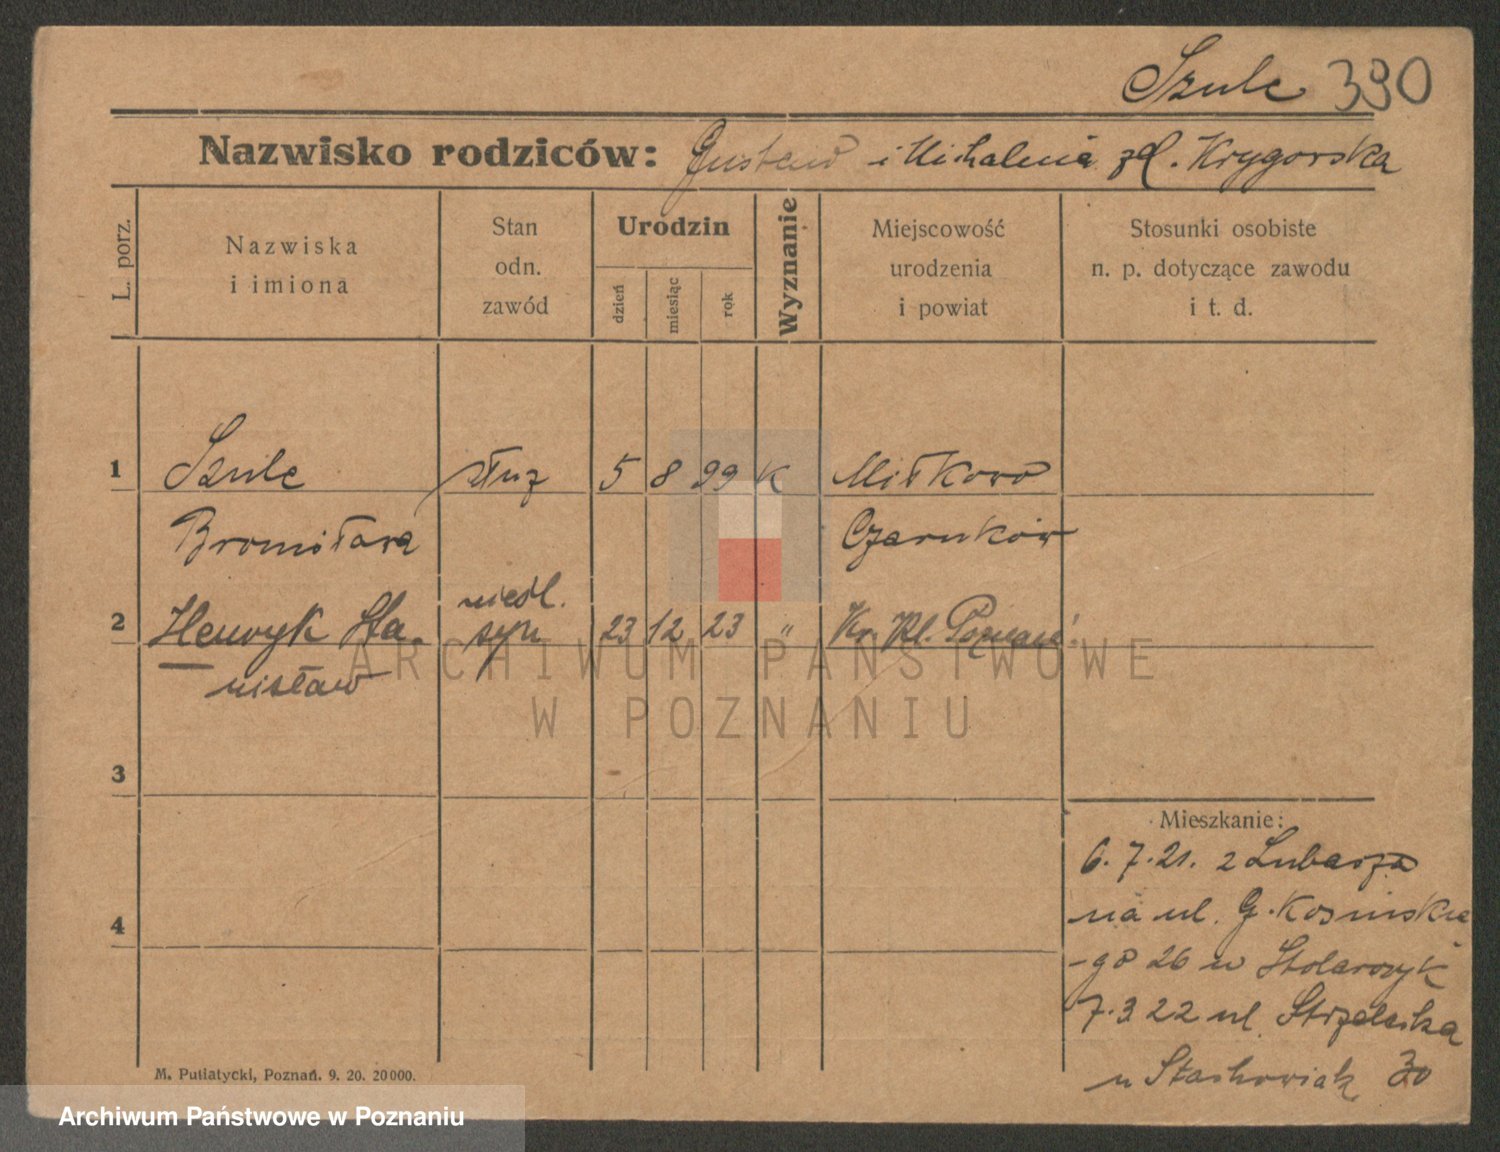 Szulc 390
Nazwisko rodziców: Gustaw i Michalina zd. Krygorska
L. porz.
Nazwiska
i imiona
Stan
odn.
zawód
Urodzin
dzień
miesiąc
rok
Wyznanie
Miejscowość
urodzenia
i powiat
Stosunki osobiste
n. p. dotyczące zawodu
i t. d.
1 Szulc służ 5 8 99 K Miłkowo
Bronisława Czarnków
nieśl.
2 Henryk Sta- syn 23 12 23 " Kr. Kl. Poznań
nisław
ARCHIWUM PAŃSTWOWE
W POZNANIU
3
Mieszkanie:
6.7.21. z Lubasza
4 na ul. G. Kosińskie
-go 26 u Stolarczyk
7.3 22 ul. Strzelecka
u Stachowiak 30
M. Putiatycki, Poznań. 9. 20. 20000.
Archiwum Państwowe w Poznaniu